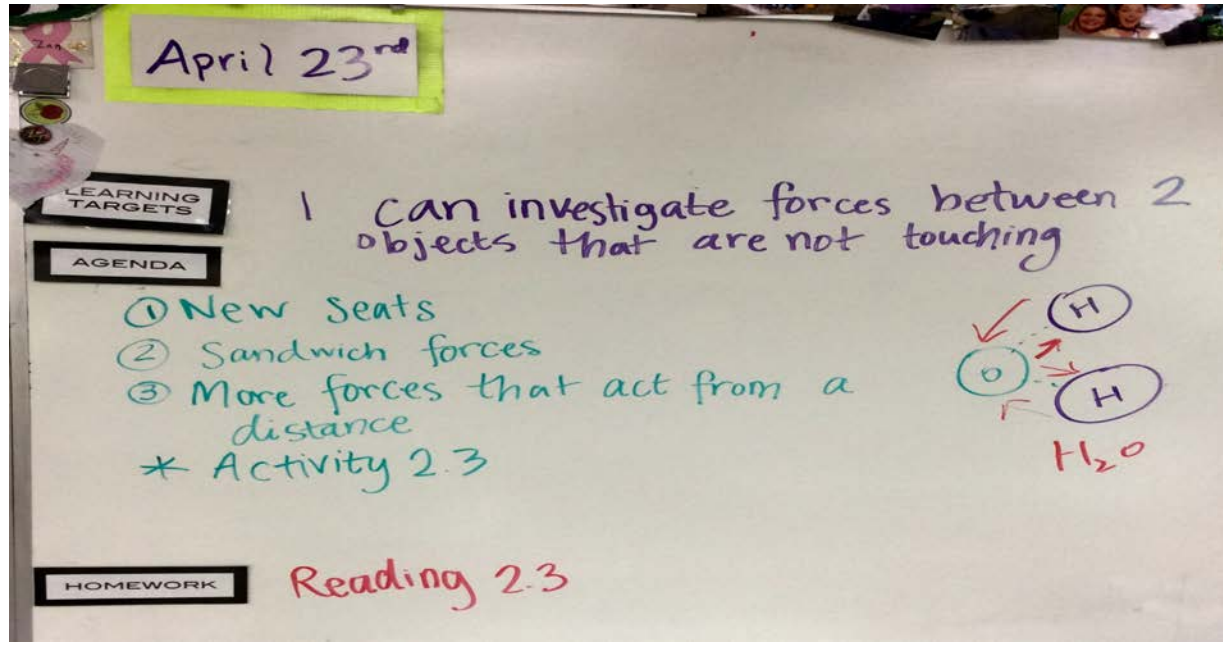 Zan
April 23rd
LEARNING
TARGETS
I can investigate forces between 2
objects that are not touching
AGENDA
① New Seats
② Sandwich forces
③ More forces that act from a
distance
* Activity 2.3
H
O
H
H₂O
HOMEWORK
Reading 2.3